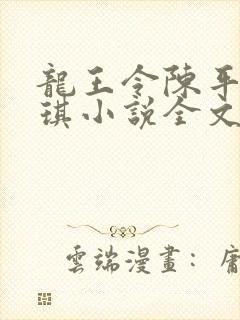 龍王令陳平
琪小說全文
雲端漫畫：庸